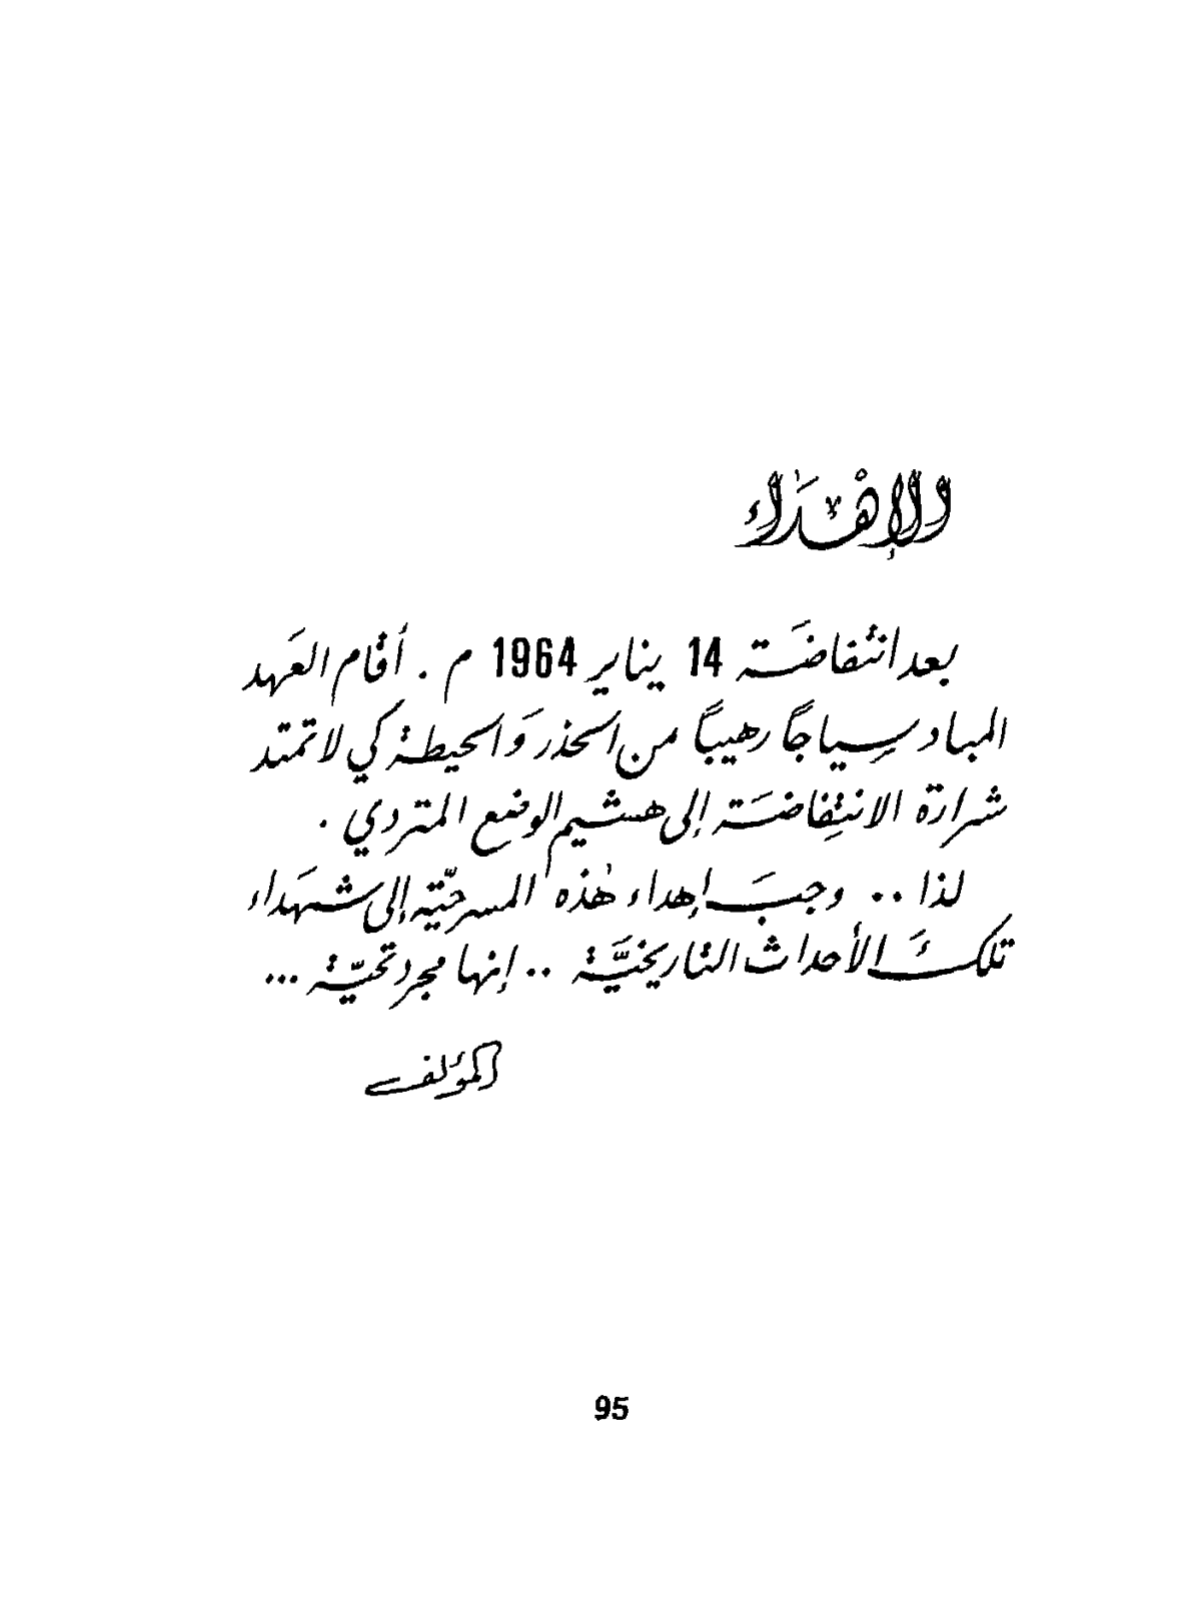 الإهْدَاء
بعد انتفاضَة 14 يناير 1964 م . أقام العَهد
المباد سِياجًا رهيبًا من الحذر وَالحيطة كي لا تمتد
شرارة الانتِفاضَة إلى هشيم الوضع المتردي .
لذا .. وجبَ إهداء هٰذه المسرحيّة إلى شهَداء
تلكَ الأحداث التاريخيَّة .. إنها مجرد تحيّة ...
المؤلف
95